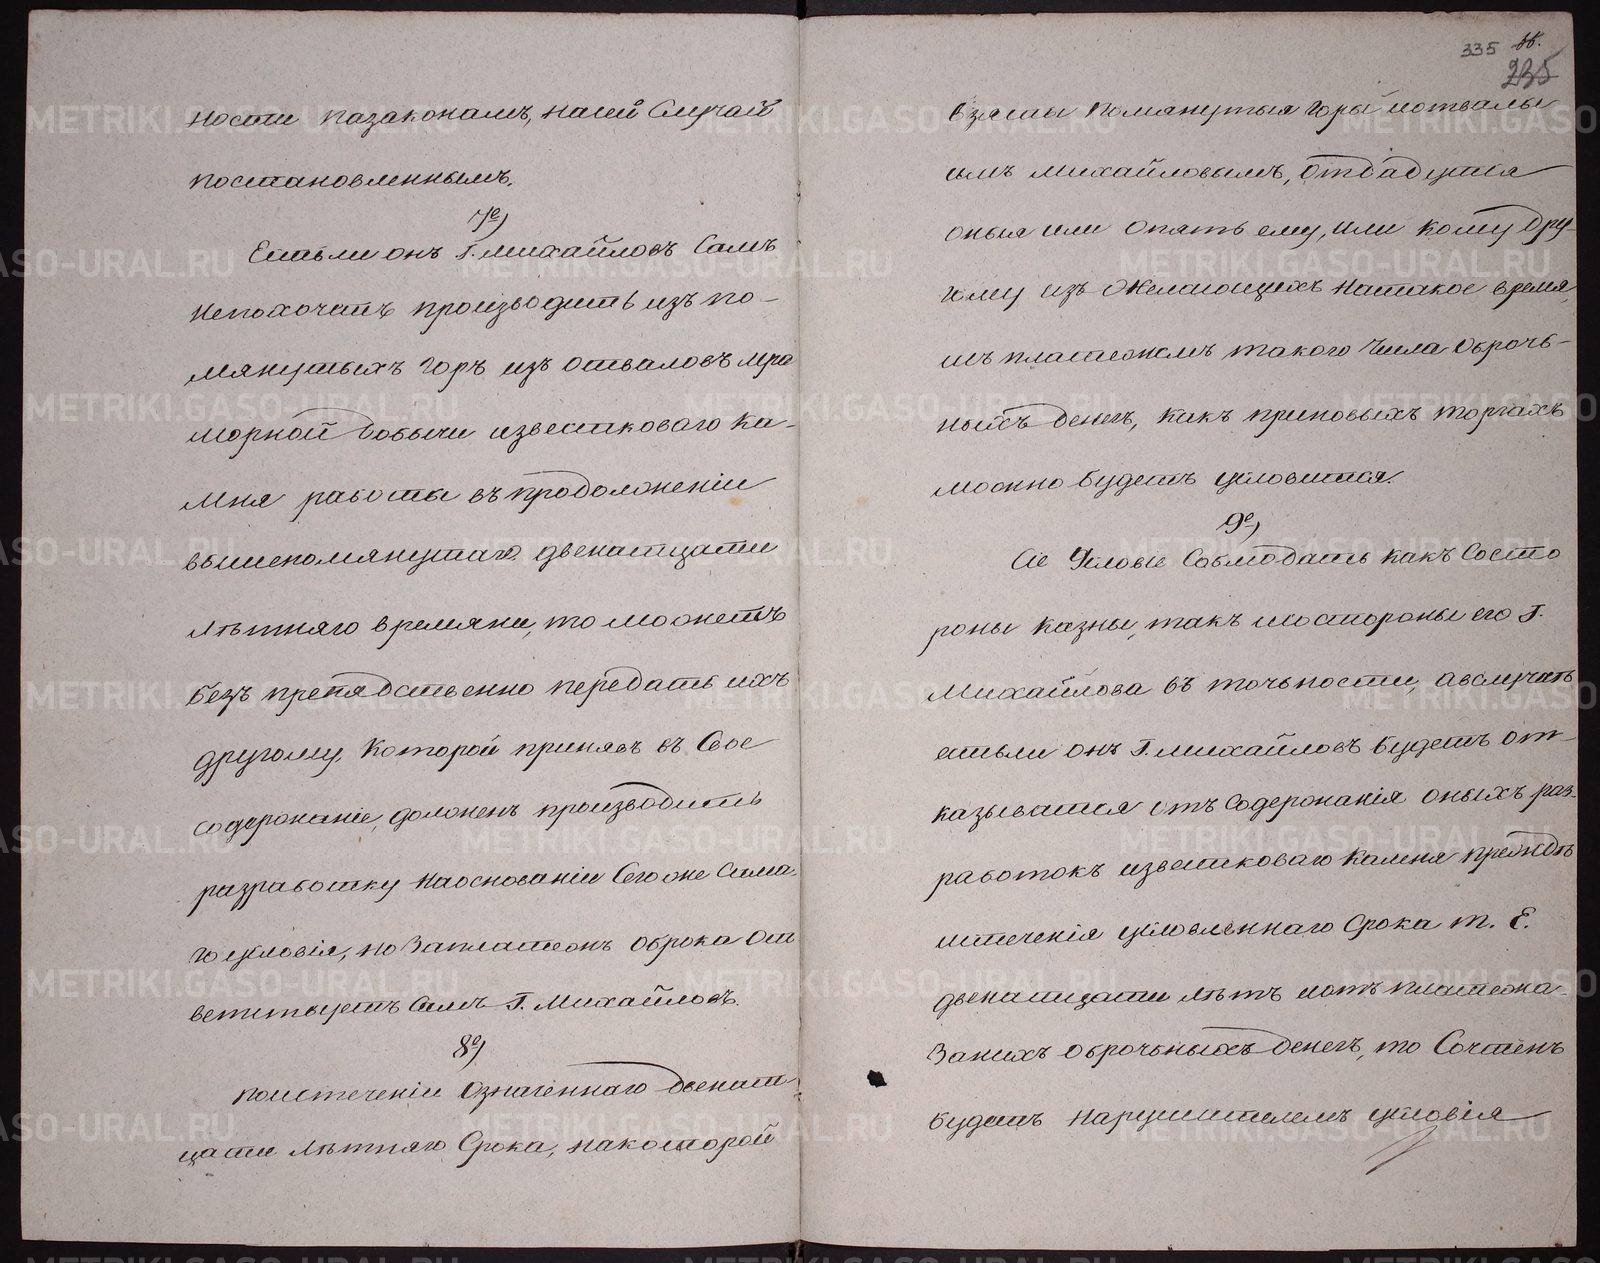 ности pазаконамъ, насей Случай
постановленнымъ.
7е)
Естьли онъ Г. Михайловъ Самъ
Непохочатъ производить изъ по-
мянутыхъ Горъ изъ отваловъ мра
морной добычи известковаго ка-
мня работы въ продолженіи
вышепомянутаго двенатцати
лѣтняго времяни, то можетъ
безъ препядственно передать ихъ
другому, Которой принявъ въ Свое
содержаніе, долженъ производить
разработку наоснованіи Сегоже Сама-
го условія, но Заплатежъ оброка От
ветствуетъ Самъ Г. Михайловъ.
8е)
поистеченіи Означеннаго двенат
цати лѣтняго Срока, накоторой
335
235
взяты Помянутыя Горы иотвалы
имъ Михайловымъ, Отдадутся
оныя или Опять ему, или кому дру-
гому изъ Желающихъ Натакое время,
исъ платежемъ такого Числа Оброчь-
ныхъ денегъ, какъ приновыхъ торгахъ
можно будетъ условится.
9е)
Сіе Условіе Соблюдать какъ Состо
роны казны, такъ исостороны его Г.
Михайлова въ точьности, авслучаѣ
естьли онъ Г. Михайловъ будетъ от-
казыватся отъ Содержанія оныхъ раз-
работокъ известковаго Камня прежде
истеченія условленнаго Срока т. Е.
двенатцати лѣтъ иотъ платежа
Занихъ оброчьныхъ денегъ, то Сочтенъ
будетъ нарушителемъ условія
METRIKI.GASO-URAL.RU